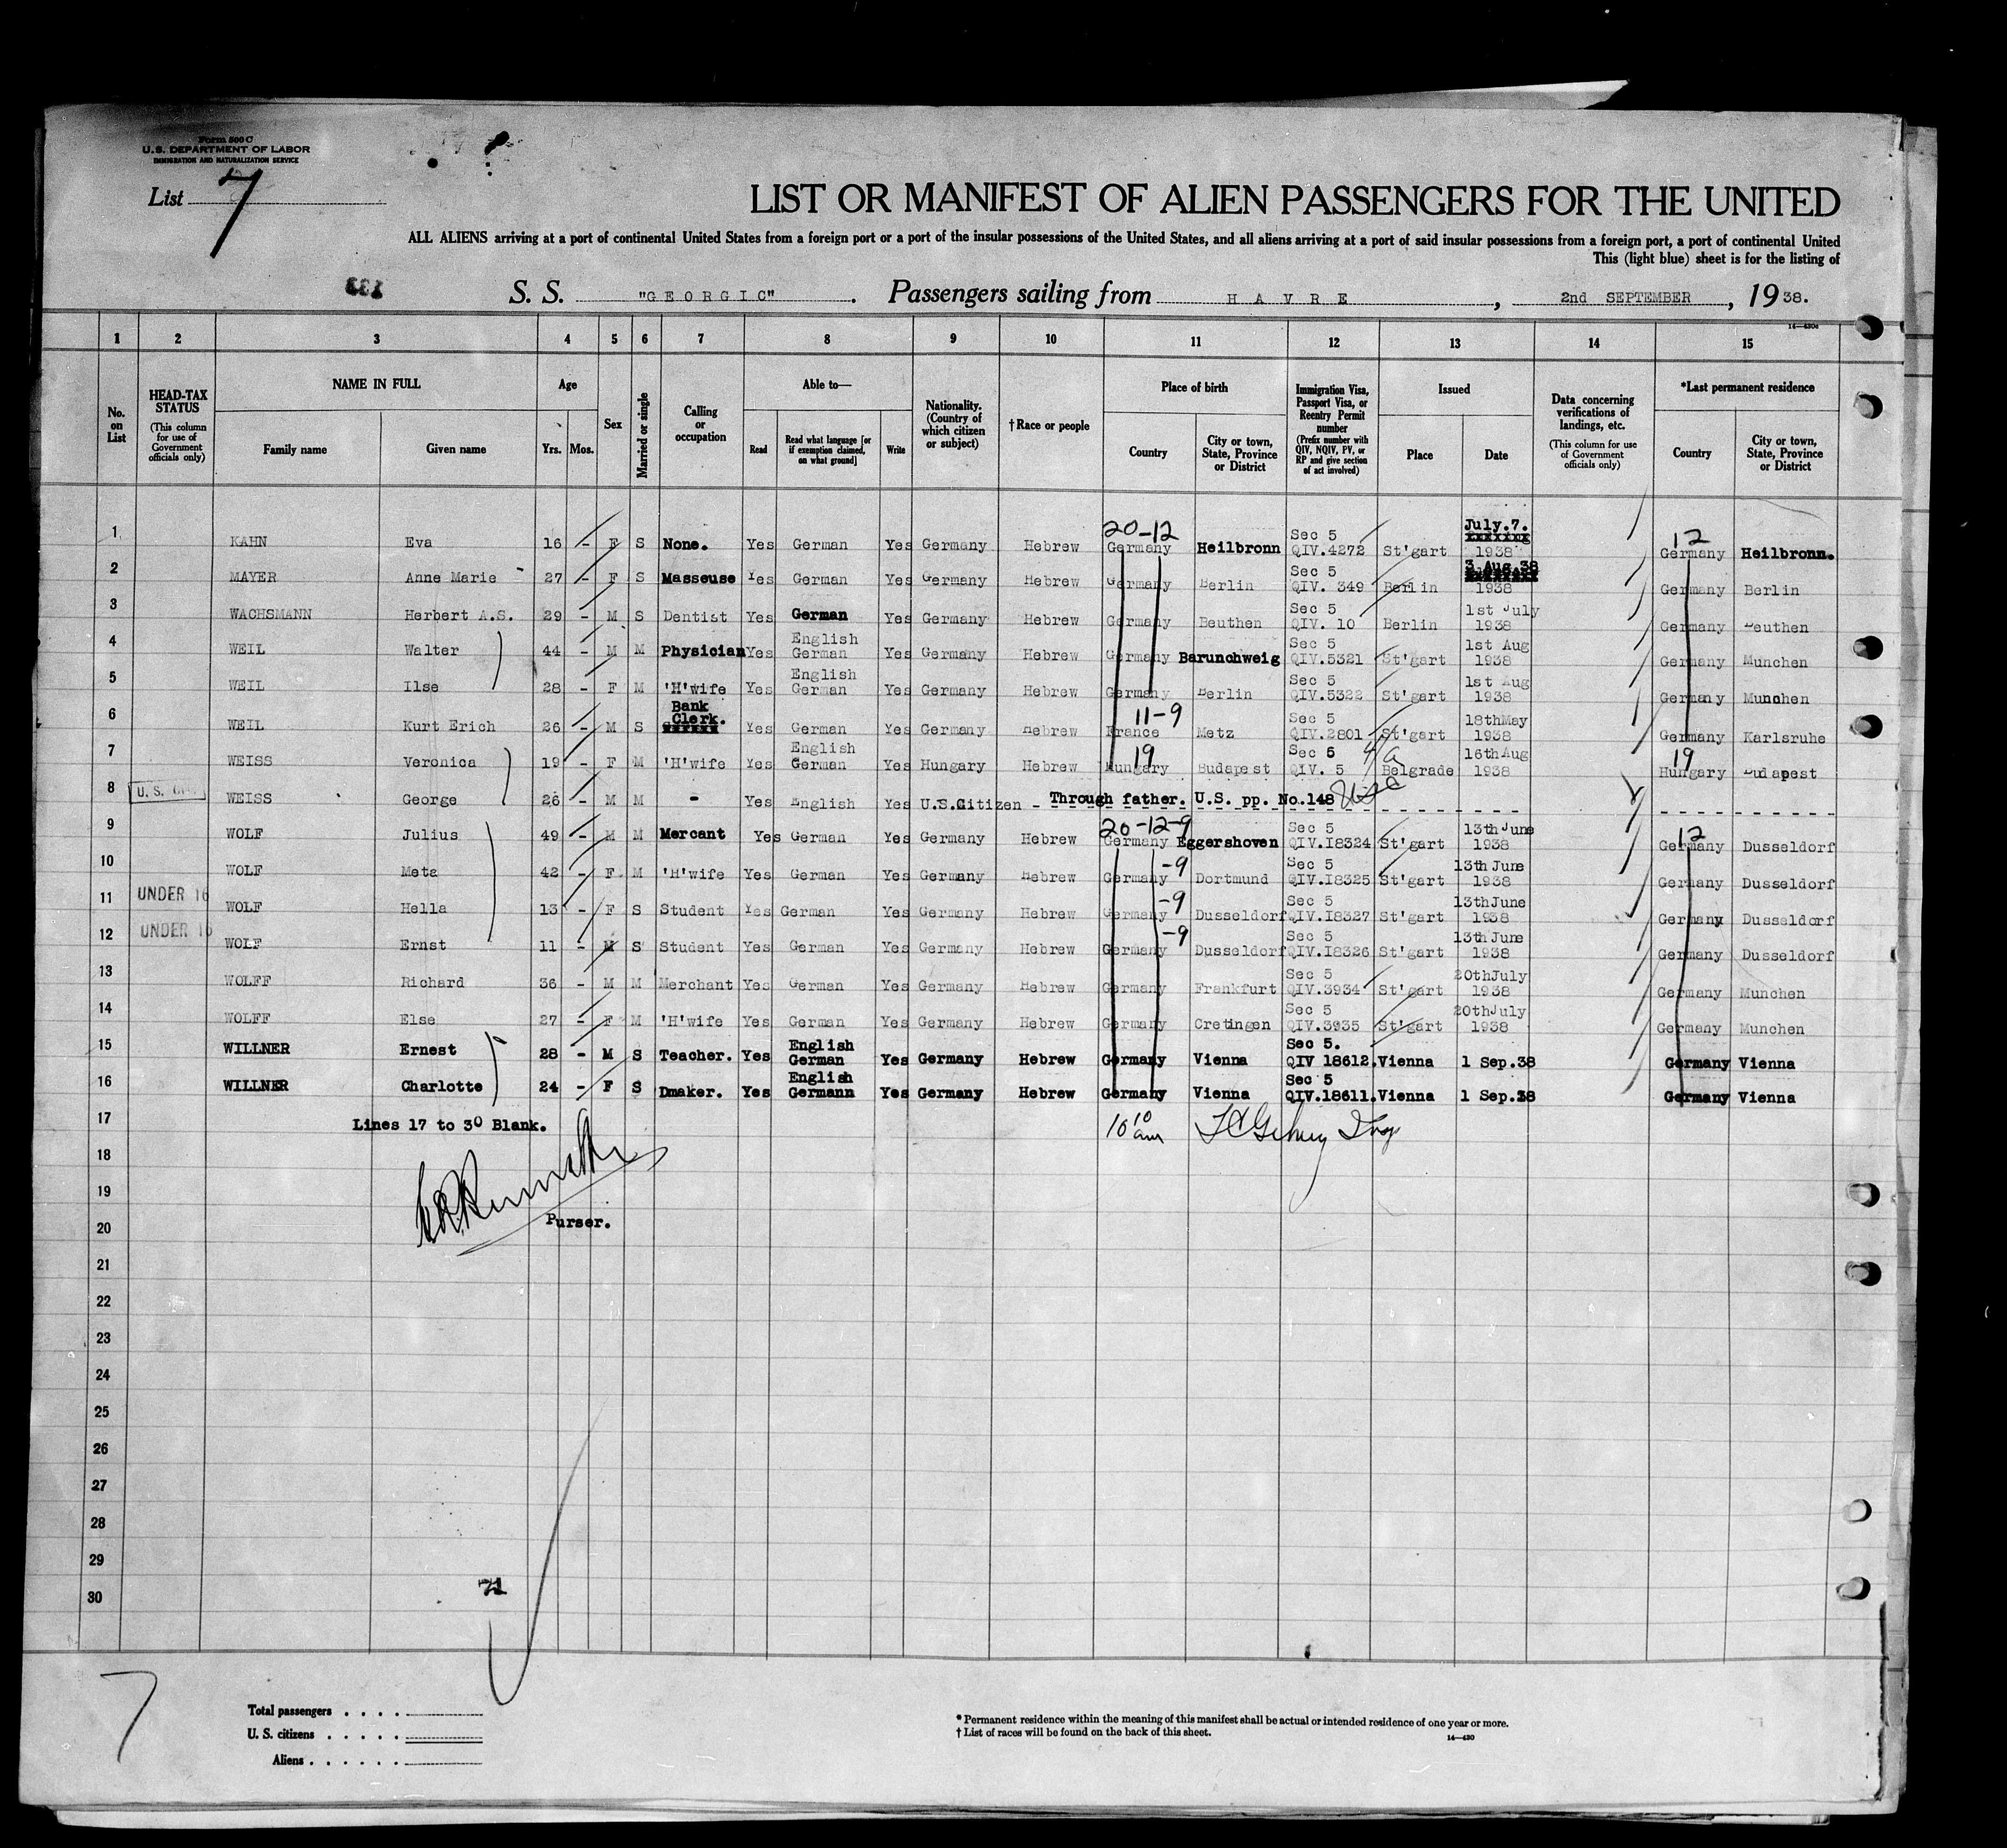 Form 500 C
U.S. DEPARTMENT OF LABOR
IMMIGRATION AND NATURALIZATION SERVICE
List 7
LIST OR MANIFEST OF ALIEN PASSENGERS FOR THE UNITED
ALL ALIENS arriving at a port of continental United States from a foreign port or a port of the insular possessions of the United States, and all aliens arriving at a port of said insular possessions from a foreign port, a port of continental United
This (light blue) sheet is for the listing of
S. S. "GEORGIC". Passengers sailing from HAVRE, 2nd SEPTEMBER, 1938.
1 2 3 4 5 6 7 8 9 10 11 12 13 14 15
No. on List
HEAD-TAX STATUS (This column for use of Government officials only)
NAME IN FULL Family name Given name
Age Yrs. Mos.
Sex
Married or single
Calling or occupation
Able to— Read Read what language [or if exemption claimed, on what ground] Write
Nationality. (Country of which citizen or subject)
†Race or people
Place of birth Country City or town, State, Province or District
Immigration Visa, Passport Visa, or Reentry Permit number (Prefix number with QIV, NQIV, PV, or RP and give section of act involved)
Issued Place Date
Data concerning verifications of landings, etc. (This column for use of Government officials only)
*Last permanent residence Country City or town, State, Province or District
1 KAHN Eva 16 - F S None. Yes German Yes Germany Hebrew 20-12 Germany Heilbronn Sec 5 QIV.4272 St'gart July.7. 1938 12 Germany Heilbronn.
2 MAYER Anne Marie 27 - F S Masseuse Yes German Yes Germany Hebrew Germany Berlin Sec 5 QIV. 349 Berlin 3 Aug 38 1938 Germany Berlin
3 WACHSMANN Herbert A.S. 29 - M S Dentist Yes German Yes Germany Hebrew Germany Beuthen Sec 5 QIV. 10 Berlin 1st July 1938 Germany Beuthen
4 WEIL Walter 44 - M M Physician Yes English German Yes Germany Hebrew Germany Barunchweig Sec 5 QIV.5321 St'gart 1st Aug 1938 Germany Munchen
5 WEIL Ilse 28 - F M 'H'wife Yes English German Yes Germany Hebrew Germany Berlin Sec 5 QIV.5322 St'gart 1st Aug 1938 Germany Munchen
6 WEIL Kurt Erich 26 - M S Bank Clerk. Yes German Yes Germany Hebrew 11-9 France Metz Sec 5 QIV.2801 St'gart 18thMay 1938 Germany Karlsruhe
7 WEISS Veronica 19 - F M 'H'wife Yes English German Yes Hungary Hebrew 19 Hungary Budapest Sec 6 QIV. 5 4/a Belgrade 16thAug 1938 19 Hungary Budapest
8 U.S. WEISS George 26 - M M - Yes English Yes U.S.Citizen - Through father. U.S. pp. No.148
9 WOLF Julius 49 - M M Mercant Yes German Yes Germany Hebrew 20-12-9 Germany Eggershoven Sec 5 QIV.I8324 St'gart 13thJune 1938 12 Germany Dusseldorf
10 WOLF Meta 42 - F M 'H'wife Yes German Yes Germany Hebrew -9 Germany Dortmund Sec 5 QIV.I8325 St'gart 13thJune 1938 Germany Dusseldorf
11 UNDER 16 WOLF Hella 13 - F S Student Yes German Yes Germany Hebrew -9 Germany Dusseldorf Sec 5 QIV.I8327 St'gart 13thJune 1938 Germany Dusseldorf
12 UNDER 16 WOLF Ernst 11 - M S Student Yes German Yes Germany Hebrew -9 Germany Dusseldorf Sec 5 QIV.I8326 St'gart 13thJune 1938 Germany Dusseldorf
13 WOLFF Richard 36 - M M Merchant Yes German Yes Germany Hebrew Germany Frankfurt Sec 5 QIV.3934 St'gart 20thJuly 1938 Germany Munchen
14 WOLFF Else 27 - F M 'H'wife Yes German Yes Germany Hebrew Germany Cretingen Sec 5 QIV.3935 St'gart 20thJuly 1938 Germany Munchen
15 WILLNER Ernest 28 - M S Teacher. Yes English German Yes Germany Hebrew Germany Vienna Sec 5. QIV 18612. Vienna 1 Sep.38 Germany Vienna
16 WILLNER Charlotte 24 - F S Dmaker. Yes English Germann Yes Germany Hebrew Germany Vienna Sec 5 QIV.18611. Vienna 1 Sep.38 Germany Vienna
17 Lines 17 to 30 Blank. 10 10 am
18
19
20 Purser.
21
22
23
24
25
26
27
28
29
30
71
7
Total passengers
U. S. citizens
Aliens
* Permanent residence within the meaning of this manifest shall be actual or intended residence of one year or more.
† List of races will be found on the back of this sheet.
14—430